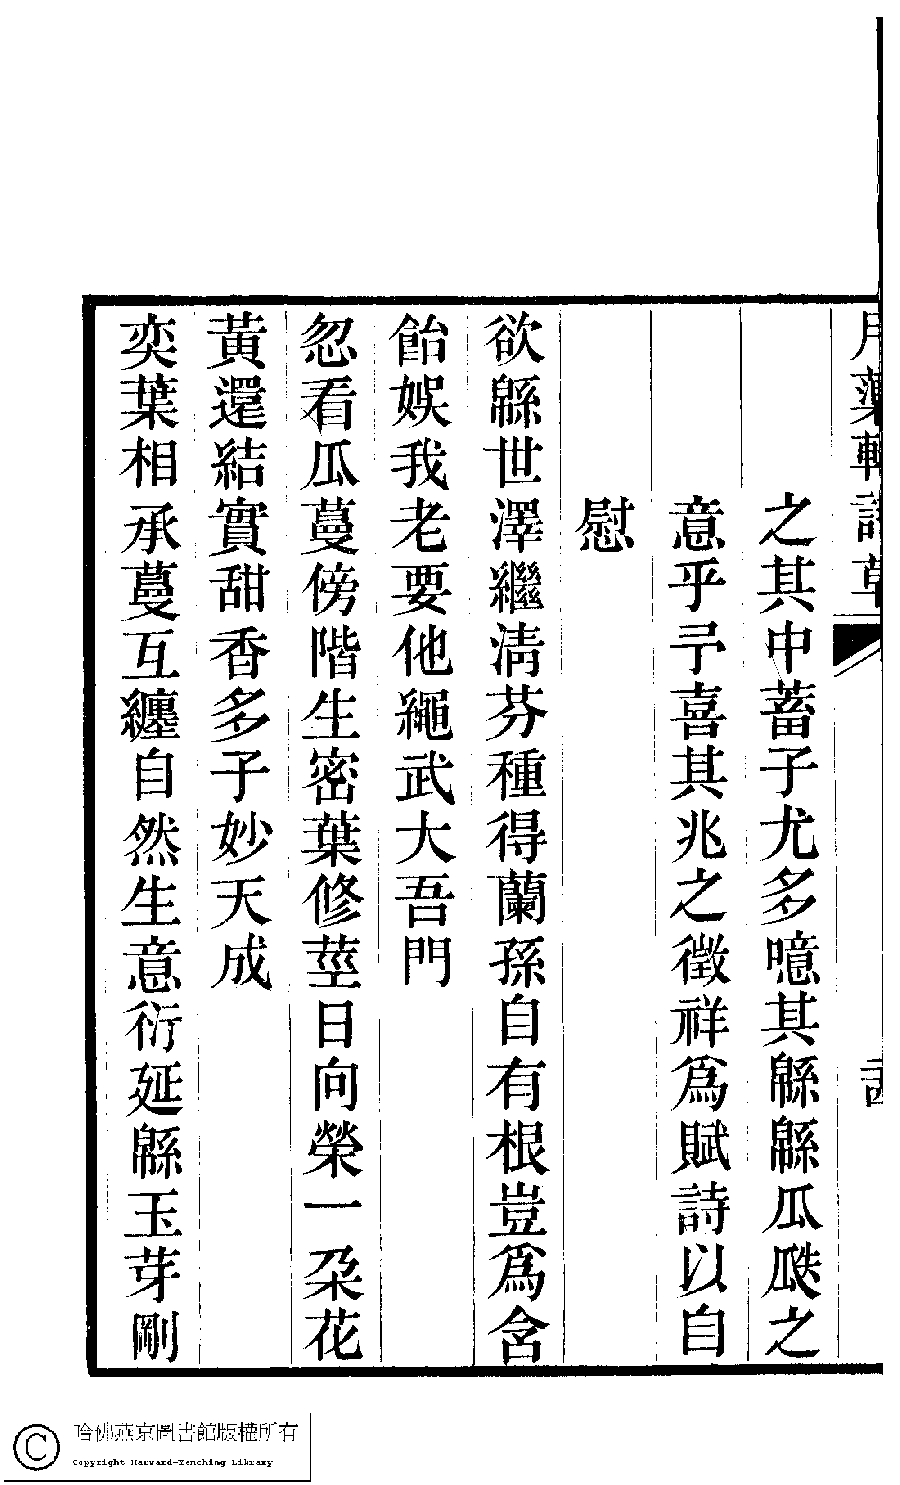 月蕖軒詩草
之其中蓄子尤多噫其緜緜瓜瓞之
意乎予喜其兆之徵祥爲賦詩以自
慰
欲緜世澤繼淸芬種得蘭孫自有根豈爲含
飴娛我老要他繩武大吾門
忽看瓜蔓傍階生密葉修莖日向榮一朶花
黃還結實甜香多子妙天成
奕葉相承蔓互纏自然生意衍延緜玉芽剛
哈佛燕京圖書館版權所有
Copyright Harvard-Yenching Library